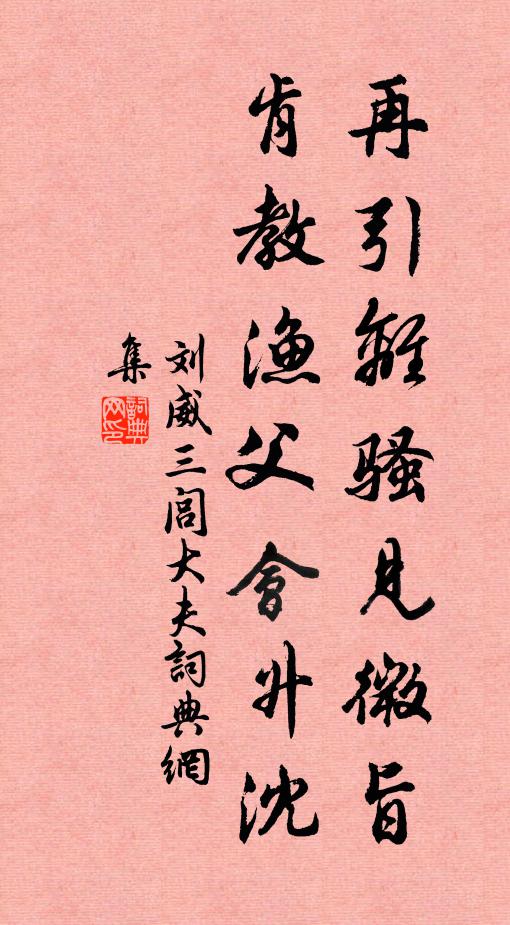 再引離騷見微旨
肯教漁父會升沈
刘威三闾大夫詞典網
集
詞典網印